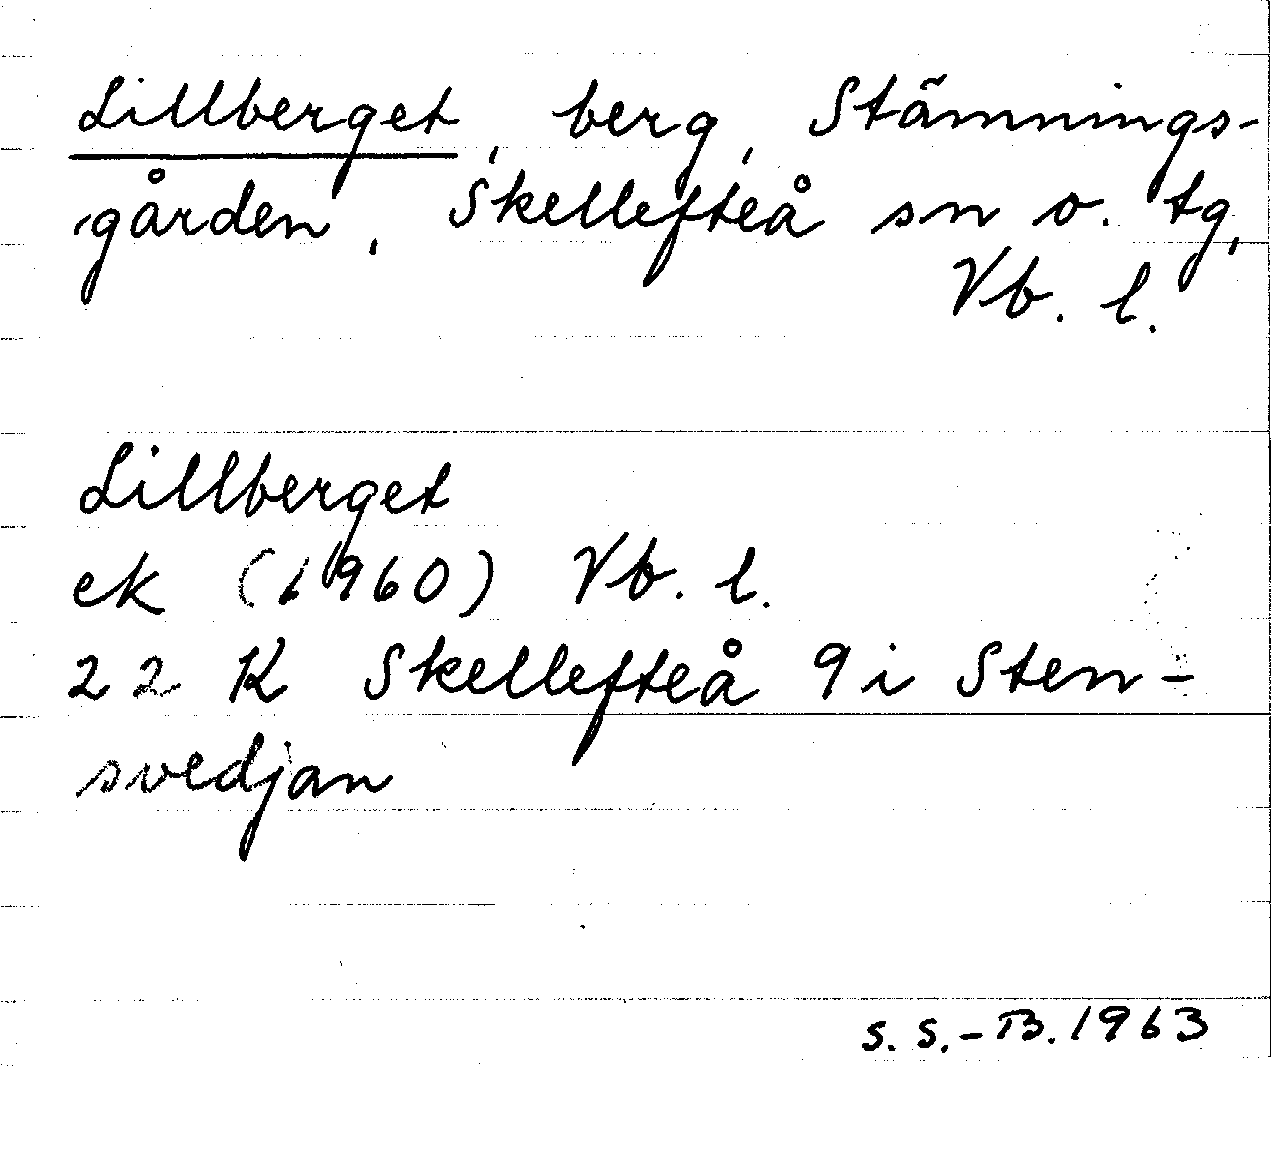 Lillberget, berg, Stämnings-
gården, Skellefteå sn o. tg,
Vb. l.
Lillberget
ek (1960) Vb. l.
22 K Skellefteå 9i Sten-
svedjan
S. S.-B. 1963